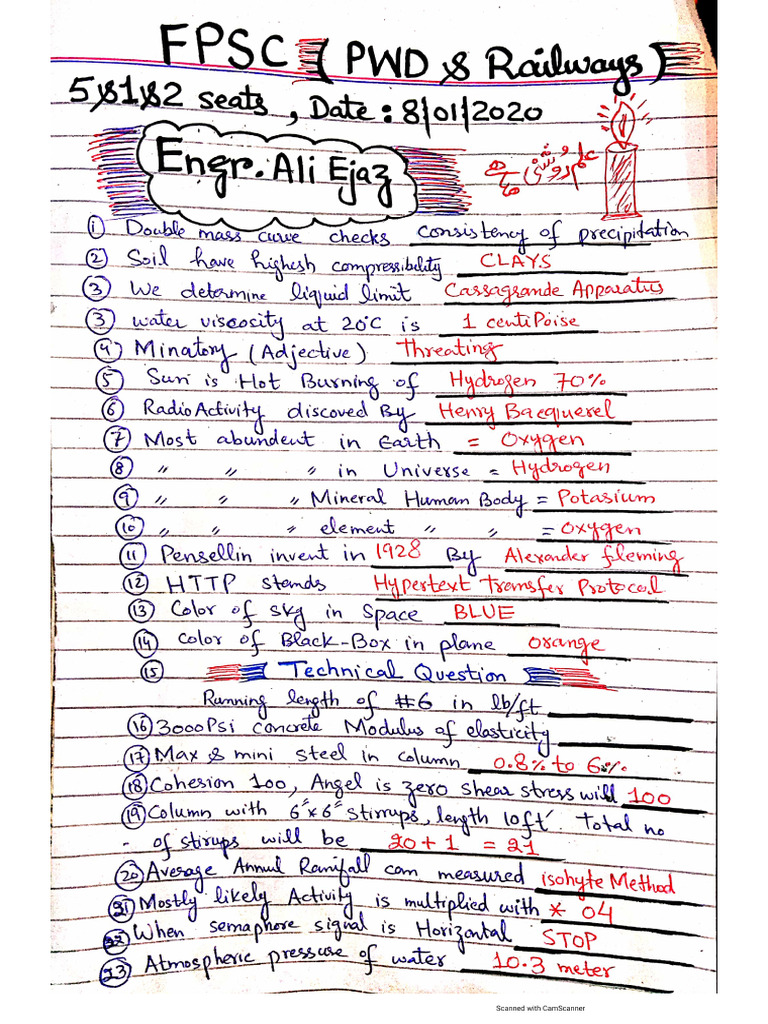 FPSC (PWD & Railways)
5,&1,&2 seats, Date: 8/01/2020
Engr. Ali Ejaz
علم روشنی ہے
① Double mass curve checks consistency of precipitation
② Soil have highesh compressibility CLAYS
③ We determine liquid limit Cassagrande Apparatus
③ water viscosity at 20°C is 1 centiPoise
④ Minatory (Adjective) Threating
⑤ Sun is Hot Burning of Hydrogen 70%
⑥ RadioActivity discoved By Henry Bacquerel
⑦ Most abundent in Earth = Oxygen
⑧ " " " in Universe = Hydrogen
⑨ " " " Mineral Human Body = Potasium
⑩ " " " element " " = Oxygen
⑪ Pensellin invent in 1928 By Alexander fleming
⑫ HTTP stands Hypertext Transfer Protocal
⑬ Color of sky in Space BLUE
⑭ Color of Black-Box in plane orange
⑮ Technical Question
Running length of #6 in lb/ft
⑯ 3000Psi concrete Modulus of elasticity
⑰ Max & mini steel in column 0.8% to 6%
⑱ Cohesion 100, Angel is zero shear stress will 100
⑲ Column with 6"x6" stirrups, length 10ft Total no
- of stirups will be 20+1 = 21
⑳ Average Annul Rainfall can measured isohyte Method
㉑ Mostly likely Activity is multiplied with * 04
㉒ When semaphore signal is Horizontal STOP
㉓ Atmospheric pressure of water 10.3 meter
Scanned with CamScanner